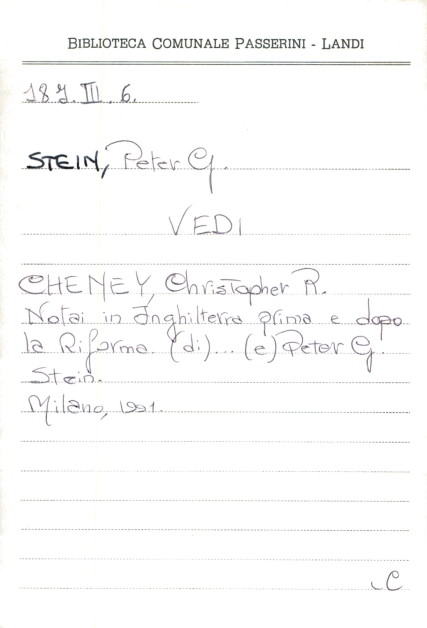 BIBLIOTECA COMUNALE PASSERINI - LANDI
18 J. III. 6.
STEIN, Peter G.
VEDI
CHENEY, Christopher R.
Notai in Inghilterra prima e dopo
la Riforma. (di)... (e) Peter G.
Stein.
Milano, 1991.
C